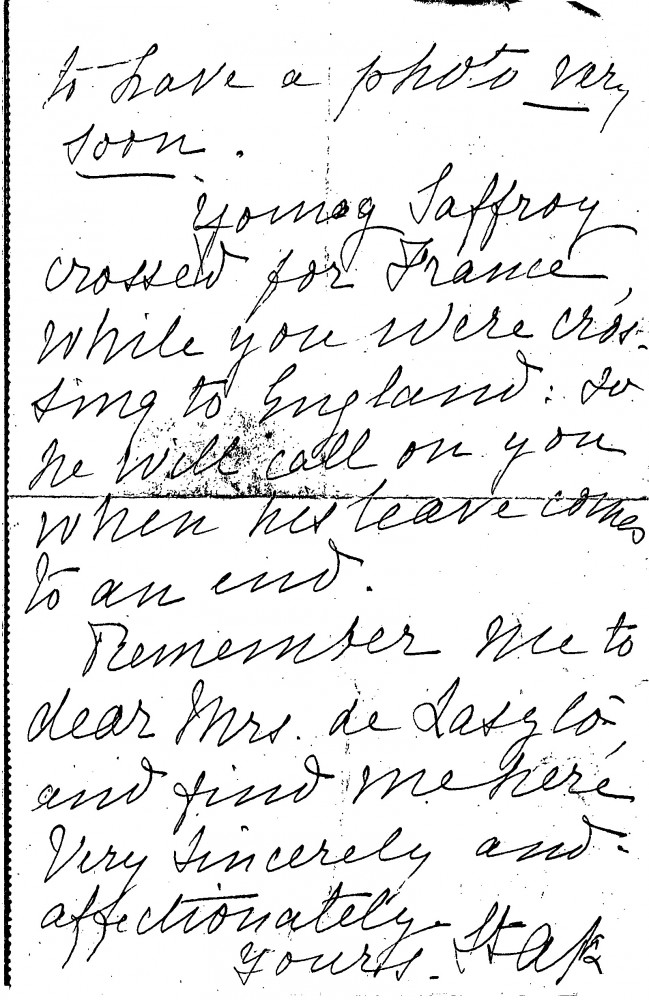 to have a photo very
soon.
Young Saffroy
crossed for France,
while you were cros-
sing to England: so
he will call on you
when his leave comes
to an end.
Remember me to
dear Mrs. de Laszlo,
and find me here
Very sincerely and
affectionately
Yours.